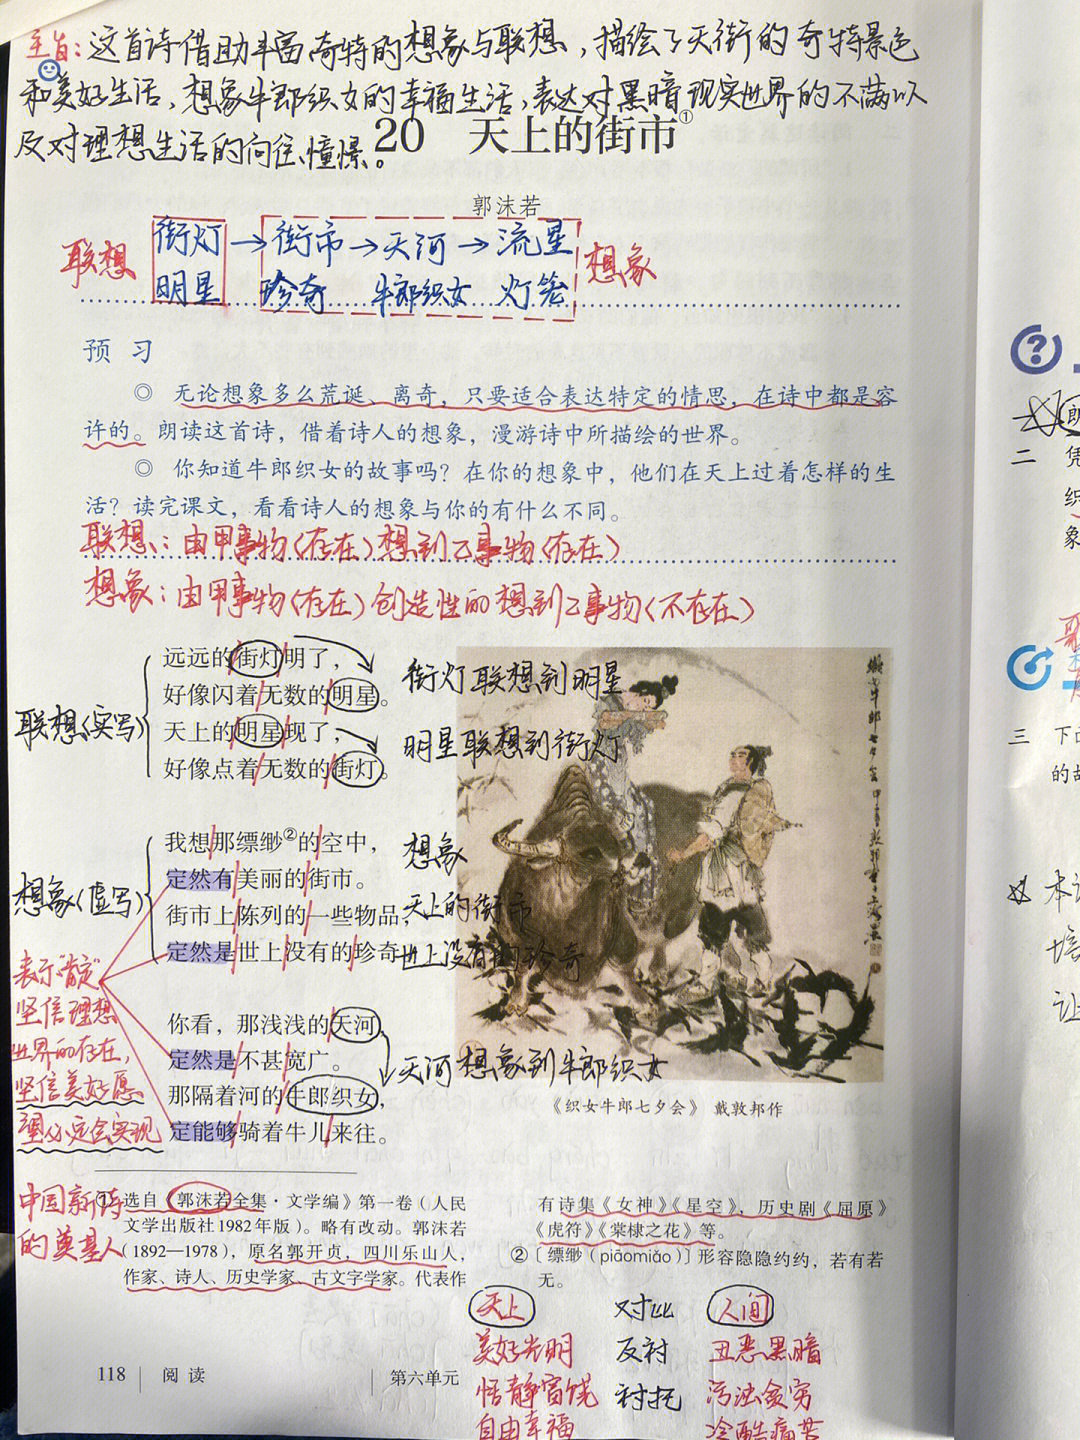 主旨：这首诗借助丰富奇特的想象与联想，描绘了天街的奇特景色
和美好生活，想象牛郎织女的幸福生活，表达对黑暗现实世界的不满以
及对理想生活的向往、憧憬。
20 天上的街市①
郭沫若
联想
街灯→街市→天河→流星
明星 珍奇 牛郎织女 灯笼
想象
预 习
◎ 无论想象多么荒诞、离奇，只要适合表达特定的情思，在诗中都是容
许的。朗读这首诗，借着诗人的想象，漫游诗中所描绘的世界。
◎ 你知道牛郎织女的故事吗？在你的想象中，他们在天上过着怎样的生
活？读完课文，看看诗人的想象与你的有什么不同。
联想：由甲事物（存在）想到乙事物（存在）
想象：由甲事物（存在）创造性的想到乙事物（不存在）
联想（实写）
远远的街灯明了，
好像闪着无数的明星。
天上的明星现了，
好像点着无数的街灯。
街灯联想到明星
明星联想到街灯
想象（虚写）
我想那缥缈②的空中，
定然有美丽的街市。
街市上陈列的一些物品，
定然是世上没有的珍奇。
想象
天上的街市
世上没有的珍奇
表示肯定
坚信理想
世界的存在，
坚信美好愿
望必定会实现
你看，那浅浅的天河，
定然是不甚宽广。
那隔着河的牛郎织女，
定能够骑着牛儿来往。
天河想象到牛郎织女
《织女牛郎七夕会》 戴敦邦作
中国新诗
的奠基人
① 选自《郭沫若全集·文学编》第一卷（人民
文学出版社1982年版）。略有改动。郭沫若
（1892—1978），原名郭开贞，四川乐山人，
作家、诗人、历史学家、古文字学家。代表作
有诗集《女神》《星空》，历史剧《屈原》
《虎符》《棠棣之花》等。
②〔缥缈（piāomiǎo）〕形容隐隐约约，若有若
无。
天上 对比 人间
美好光明 反衬 丑恶黑暗
恬静富饶 衬托 污浊贫穷
自由幸福 冷酷痛苦
118 阅 读 第六单元
二 凭
织
象
三 下
的故
本
培
让